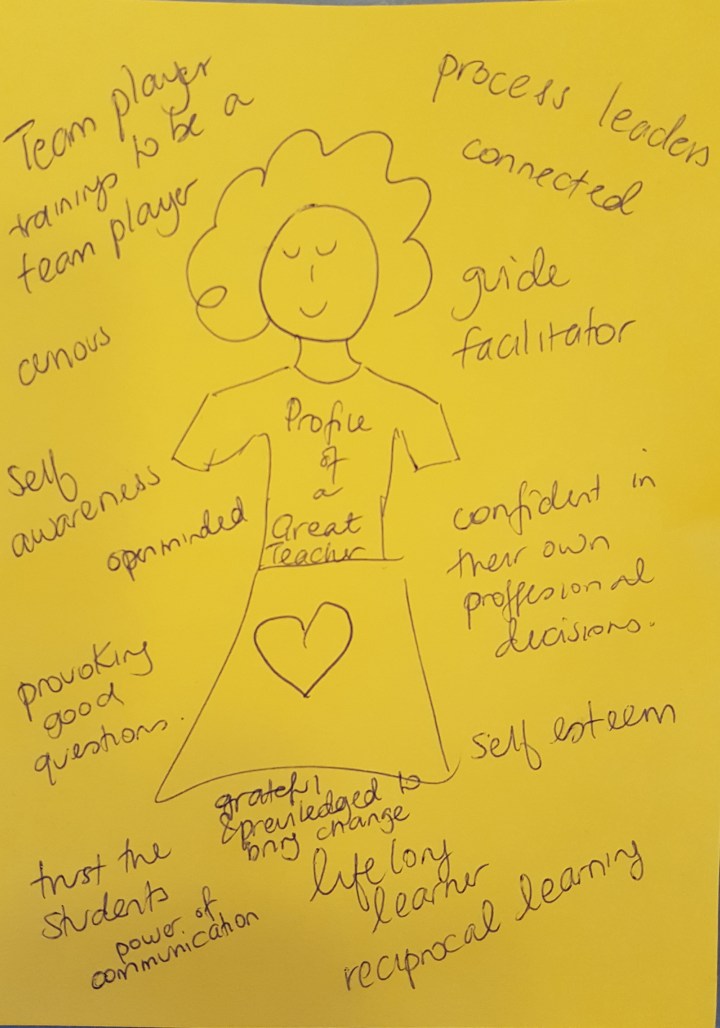 Team player
training to be a
team player
process leaders
connected
curious
guide
facilitator
Profile
of
a
Great
Teacher
self
awareness
openminded
confident in
their own
proffesional
decisions.
provoking
good
questions.
self esteem
grateful
& previledged to
bring change
trust the
students
power of
communication
lifelong
learner
reciprocal learning